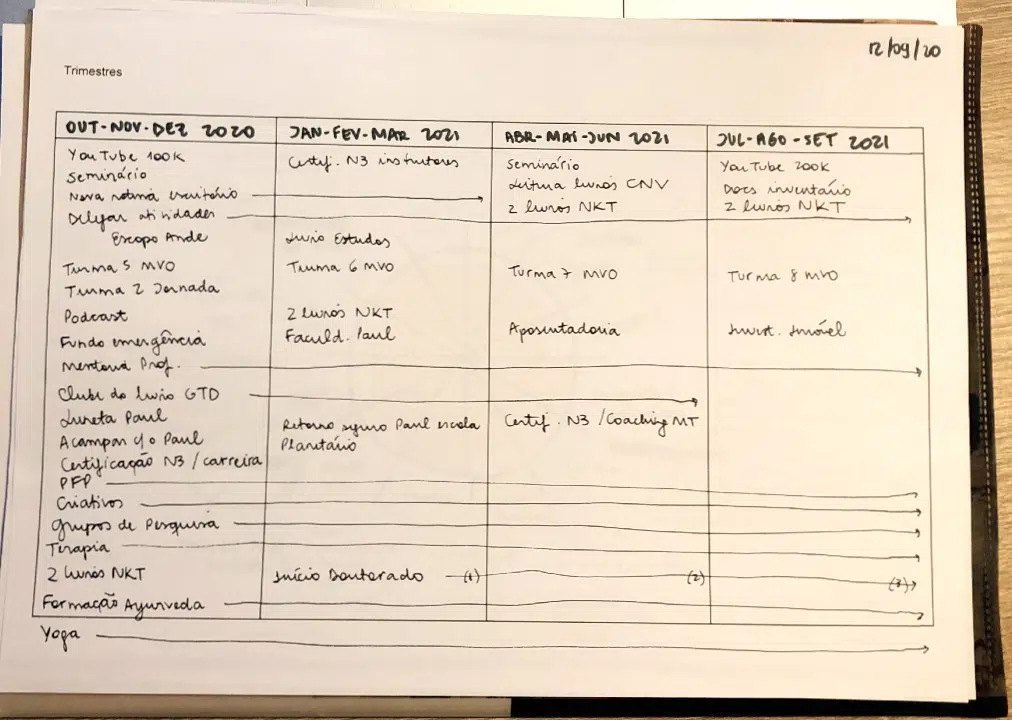 12/09/20
Trimestres
OUT-NOV-DEZ 2020 JAN-FEV-MAR 2021 ABR-MAI-JUN 2021 JUL-AGO-SET 2021
YouTube 100K Certif. N3 instrutores Seminário YouTube 200K
Seminário Leitura livros CNV Docs inventário
Nova rotina escritório 2 livros NKT 2 livros NKT
Delegar atividades
Escopo Ande Livro Estudos
Turma 5 MVO Turma 6 MVO Turma 7 MVO Turma 8 MVO
Turma 2 Jornada
Podcast 2 livros NKT
Fundo emergência Faculd. Paul Aposentadoria Invest. Imóvel
Mentoria Prof.
Clube do livro GTD
Luneta Paul Retorno seguro Paul escola Certif. N3 /Coaching MT
Acampar c/o Paul Planetário
Certificação N3 / carreira
PFP
Criativos
Grupos de Pesquisa
Terapia
2 livros NKT Início Doutorado (1) (2) (3)
Formação Ayurveda
Yoga